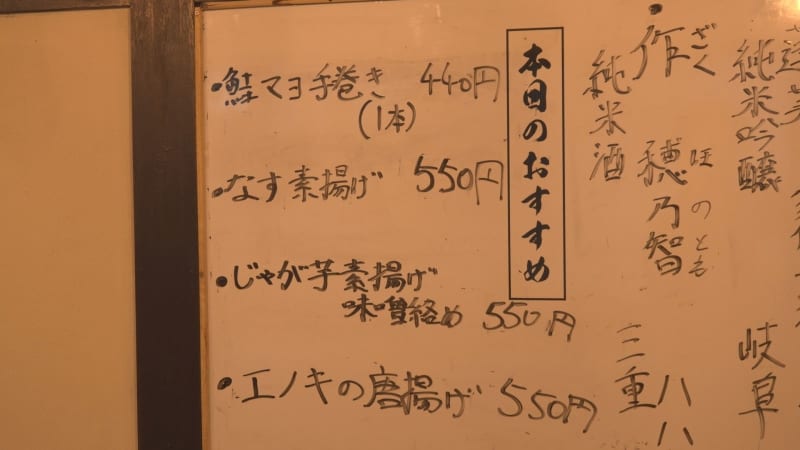 ・鮭マヨ手巻き 440円
(1本)
・なす素揚げ 550円
・じゃが芋素揚げ
味噌絡め 550円
・エノキの唐揚げ 550円
本日のおすすめ
・作 穂乃智
ざく ほのとも
純米酒
三重
八八
純米吟醸
岐阜